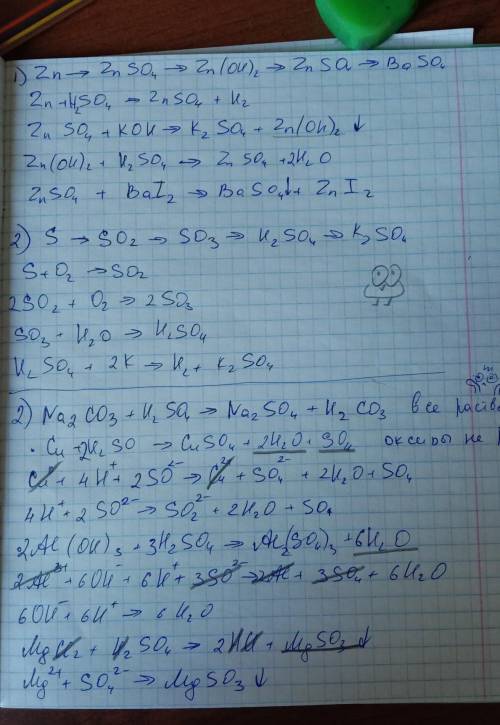 1) Zn → ZnSO4 → Zn(OH)2 → ZnSO4 → BaSO4
Zn + H2SO4 → ZnSO4 + H2
ZnSO4 + KOH → K2SO4 + Zn(OH)2 ↓
Zn(OH)2 + H2SO4 → ZnSO4 + 2H2O
ZnSO4 + BaI2 → BaSO4↓ + ZnI2
2) S → SO2 → SO3 → H2SO4 → K2SO4
S + O2 → SO2
2SO2 + O2 → 2SO3
SO3 + H2O → H2SO4
H2SO4 + 2K → H2 + K2SO4
2) Na2CO3 + H2SO4 → Na2SO4 + H2CO3 все раств
Cu + 2H2SO → CuSO4 + 2H2O + SO4 оксиды не
Cu + 4H+ + 2SO2- → Cu2+ + SO4 2- + 2H2O + SO4
4H+ + 2SO2- → SO2 2- + 2H2O + SO4
2Al(OH)3 + 3H2SO4 → Al2(SO4)3 + 6H2O
2Al3+ + 6OH- + 6H+ + 3SO2- → 2Al + 3SO4 + 6H2O
6OH- + 6H+ → 6H2O
+ H2SO4 → + MgSO3 ↓
Mg2+ + SO4 2- → MgSO3 ↓